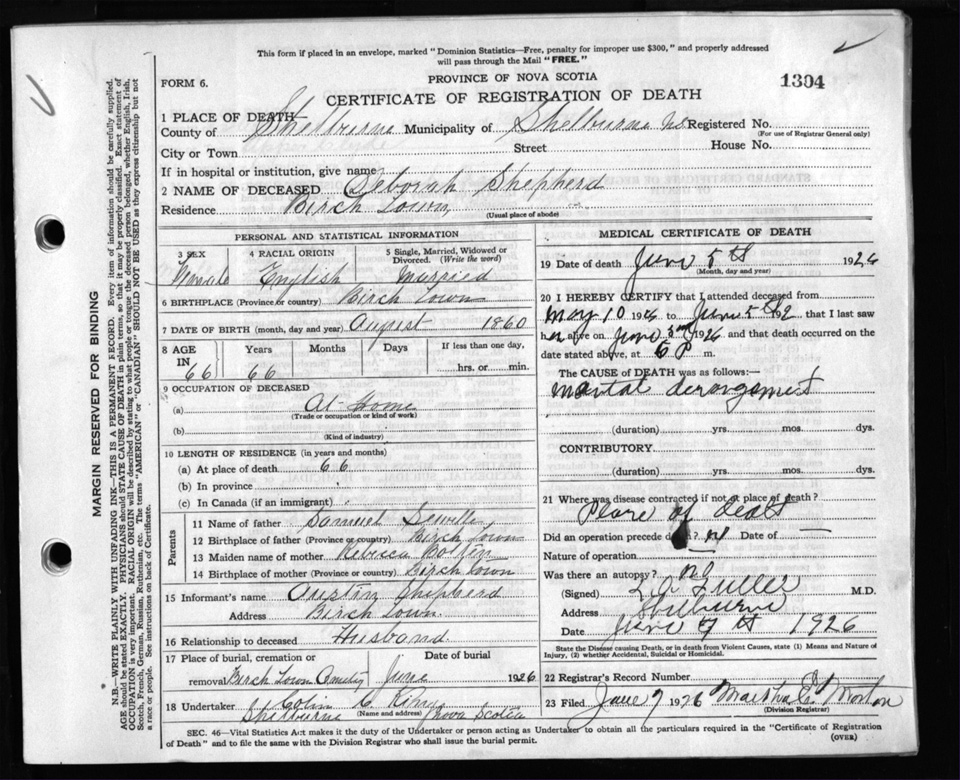 This form if placed in an envelope, marked "Dominion Statistics—Free, penalty for improper use $300," and properly addressed
will pass through the Mail "FREE."
FORM 6.
PROVINCE OF NOVA SCOTIA
1304
CERTIFICATE OF REGISTRATION OF DEATH
1 PLACE OF DEATH
County of Shelburne Municipality of Shelburne N.S. Registered No.
(For use of Registrar General only)
City or Town Street House No.
If in hospital or institution, give name
2 NAME OF DECEASED Deborah Shepherd
Residence Birch Town
(Usual place of abode)
PERSONAL AND STATISTICAL INFORMATION
3 SEX 4 RACIAL ORIGIN 5 Single, Married, Widowed or Divorced. (Write the word)
Female English Married
6 BIRTHPLACE (Province or country) Birch Town
7 DATE OF BIRTH (month, day and year) August 1860
8 AGE IN 66 Years 66 Months Days If less than one day, hrs. or min.
9 OCCUPATION OF DECEASED
(a) At Home
(Trade or occupation or kind of work)
(b)
(Kind of industry)
10 LENGTH OF RESIDENCE (in years and months)
(a) At place of death 66
(b) In province
(c) In Canada (if an immigrant)
Parents
11 Name of father Samuel
12 Birthplace of father (Province or country) Birch Town
13 Maiden name of mother
14 Birthplace of mother (Province or country) Birch Town
15 Informant's name Shepherd
Address Birch Town
16 Relationship to deceased Husband
17 Place of burial, cremation or removal Birch Town Date of burial June 1926
18 Undertaker Colin C.
Shelburne (Name and address) Nova Scotia
MEDICAL CERTIFICATE OF DEATH
19 Date of death June 5th 1926
(Month, day and year)
20 I HEREBY CERTIFY that I attended deceased from
May 10 1926 to June 5th 192 that I last saw
h alive on June 1926 and that death occurred on the
date stated above, at 6 P m.
The CAUSE of DEATH was as follows:—
mental derangement
(duration) yrs. mos. dys.
CONTRIBUTORY
(duration) yrs. mos. dys.
21 Where was disease contracted if not at place of death?
Place of death
Did an operation precede death? no Date of —
Nature of operation
Was there an autopsy? no
(Signed) Fuller M.D.
Address Shelburne
Date June 7th 1926
State the Disease causing Death, or in death from Violent Causes, state (1) Means and Nature of Injury, (2) whether Accidental, Suicidal or Homicidal.
22 Registrar's Record Number
23 Filed June 7 1926 Martha Morton
(Division Registrar)
SEC. 46—Vital Statistics Act makes it the duty of the Undertaker or person acting as Undertaker to obtain all the particulars required in the "Certificate of Registration
of Death" and to file the same with the Division Registrar who shall issue the burial permit.
(OVER)
MARGIN RESERVED FOR BINDING
N.B.—WRITE PLAINLY WITH UNFADING INK—THIS IS A PERMANENT RECORD. Every item of information should be carefully supplied.
AGE should be stated EXACTLY. PHYSICIANS should STATE CAUSE OF DEATH in plain terms, so that it may be properly classified. Exact statement of
OCCUPATION is very important. RACIAL ORIGIN will be described by stating to what people or tongue the deceased person belonged, whether English, Irish,
Scotch, French, German, Russian, Ruthenian, etc. The terms "AMERICAN" or "CANADIAN" SHOULD NOT BE USED as they express citizenship but not
a race or people. See instructions on back of Certificate.